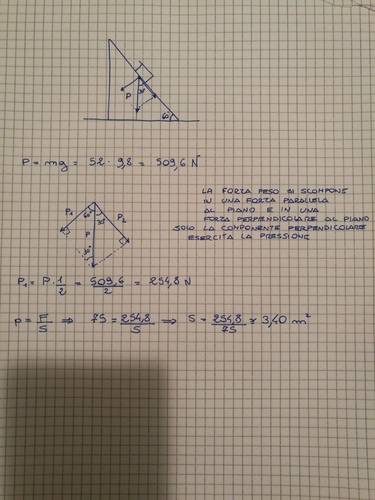 P
60°
P = mg = 52 · 9,8 = 509,6 N
LA FORZA PESO SI SCOMPONE
IN UNA FORZA PARALLELA
AL PIANO E IN UNA
FORZA PERPENDICOLARE AL PIANO
SOLO LA COMPONENTE PERPENDICOLARE
ESERCITA LA PRESSIONE
P₁
60°
30°
P₂
P
P₁ = P · 1/2 = 509,6/2 = 254,8 N
p = F/S ⇒ 75 = 254,8/S ⇒ S = 254,8/75 ≅ 3,40 m²